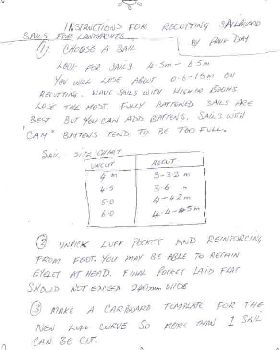 INSTRUCTIONS FOR RECUTTING SAILBOARD
SAILS FOR LANDYACHTS
BY PAUL DAY
① CHOOSE A SAIL
LOOK FOR SAILS 4.5m - 6.5m
YOU WILL LOSE ABOUT 0.6-1.5m ON
RECUTTING. WAVE SAILS WITH HIGHER BOOMS
LOSE THE MOST. FULLY BATTENED SAILS ARE
BEST BUT YOU CAN ADD BATTENS. SAILS WITH
"CAM" BATTENS TEND TO BE TOO FULL.
SAIL SIZE CHART
UNCUT RECUT
4 m 3-3.2 m
4.5 3.6 "
5.0 4-4.2 m
6.0 4.4-4.5 m
② UNPICK LUFF POCKET AND REINFORCING
FROM FOOT. YOU MAY BE ABLE TO RETAIN
EYELET AT HEAD. FINAL POCKET LAID FLAT
SHOULD NOT EXCEED WIDE
③ MAKE A CARBOARD TEMPLATE FOR THE
NEW LUFF CURVE SO MORE THAN 1 SAIL
CAN BE CUT.